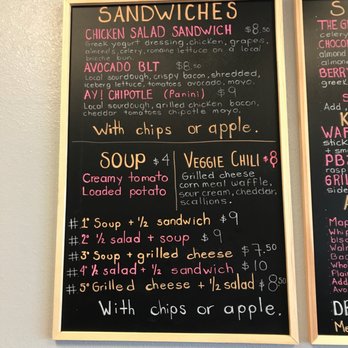 SANDWICHES
CHICKEN SALAD SANDWICH $8.50
Greek yogurt dressing, chicken, grapes,
almonds, celery, romaine lettuce on a local
brioche bun.
AVOCADO BLT $8.50
Local sourdough, crispy bacon, shredded,
iceberg lettuce, tomatoes avocado, mayo.
AY! CHIPOTLE (Panini) $9
Local sourdough, grilled chicken bacon,
cheddar tomatoes chipotle mayo.
With chips or apple.
SOUP $4
Creamy tomato
Loaded potato
VEGGIE CHILI $8
Grilled cheese
corn meal waffle,
sour cream, cheddar,
scallions.
#1° Soup + 1/2 sandwich $9
#2° 1/2 salad + soup $9
#3° Soup + grilled cheese $7.50
#4° 1/2 salad + 1/2 sandwich $10
#5° Grilled cheese + 1/2 salad $8.50
With chips or apple.
THE G
celery
CHOCO
almond
almond
BERR
S
Add
K
WAF
stick
+ sm
PB
gra
PB
gra
A
Map
Whip
bis
Wal
Ra
Add
DR
Me